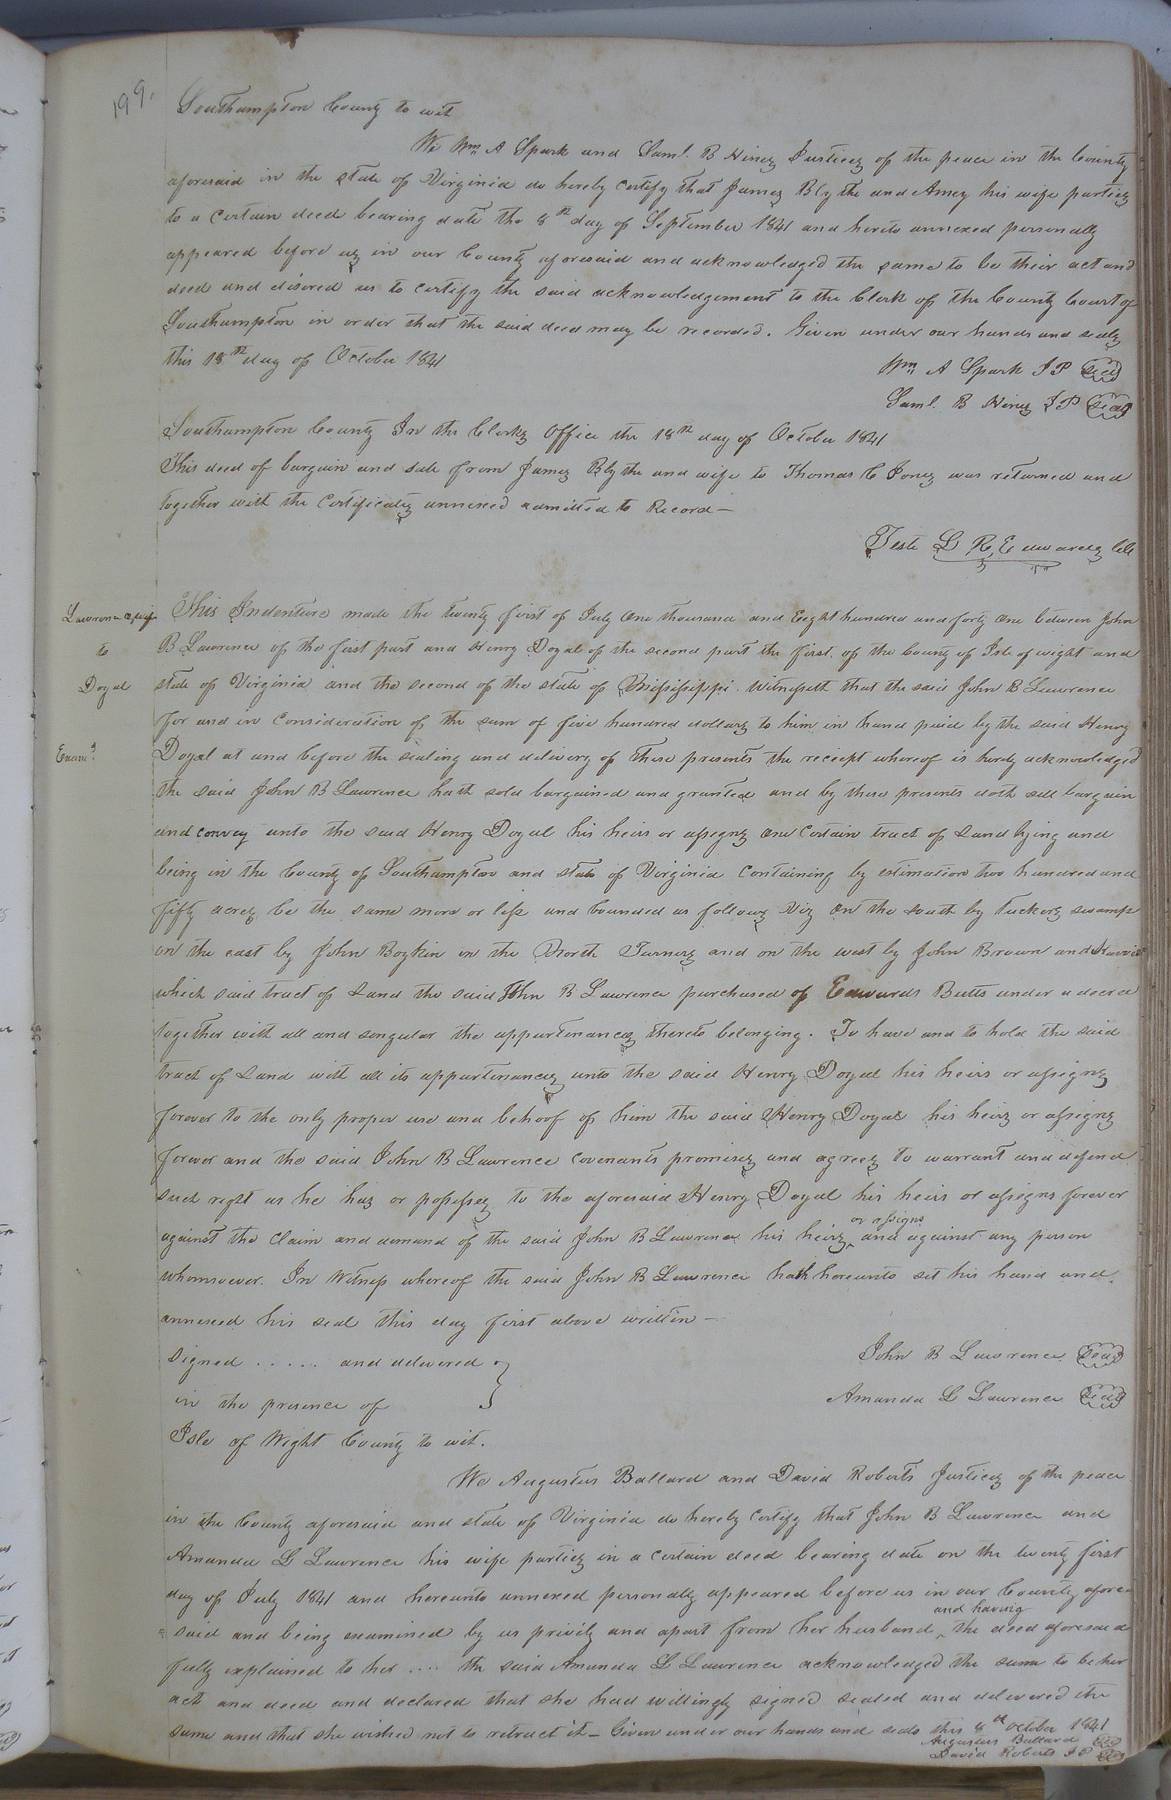 199.
Southampton County to wit
We Wm A Spark and Saml. B Hines Justices of the peace in the County
aforesaid in the state of Virginia do hereby certify that James Blythe and Amey his wife parties
to a certain deed bearing date the 8th day of September 1841 and hereto annexed personally
appeared before us in our County aforesaid and acknowledged the same to be their act and
deed and disired us to certify the said acknowledgement to the Clerk of the County Court of
Southampton in order that the said deed may be recorded. Given under our hands and seals
this 18th day of October 1841
Wm A Spark JP Seal
Saml. B Hines JP Seal
Southampton County In the Clerks Office the 18th day of October 1841
This deed of bargain and sale from James Blythe and wife to Thomas C Jones was returned and
together with the Certificates annexed admitted to Record—
Teste L R Edwards Clk
Lawrence & wife
to
Doyal
Examd
This Indenture made the twenty first of July One thousand and Eight hundred and forty one between John
B Lawrence of the first part and Henry Doyal of the second part the first. of the County of Isle of wight and
state of Virginia and the second of the state of Mississippi. Witnesseth that the said John B Lawrence
for and in Consideration of the sum of five hundred dollars to him in hand paid by the said Henry
Doyal at and before the sealing and delivery of these presents the receipt whereof is herby acknowledged
the said John B Lawrence hath sold bargained and granted and by these presents doth sell bargain
and convey unto the said Henry Doyal his heirs or assigns one Certain tract of Land lying and
being in the County of Southampton and state of Virginia Containing by estimation two hundred and
fifty acres be the same more or less and bounded as follows Viz on the south by Tuckers swamp
on the east by John Boykin on the North Turners and on the west by John Brown and Harris
which said tract of Land the said John B Lawrence purchased of Edwards Butts under a decree
together with all and singular the appurtenances thereto belonging. To have and to hold the said
tract of Land with all its appurtenances unto the said Henry Doyal his heirs or assigns
forever to the only proper use and behoof of him the said Henry Doyal his heirs or assigns
forever and the said John B Lawrence covenants promises and agrees to warrant and defend
such right as he has or possesses to the aforesaid Henry Doyal his heirs or assigns forever
against the claim and demand of the said John B Lawrence his heirs or assigns and against any person
whomsoever. In Witness whereof the said John B Lawrence hath hereunto set his hand and
annexed his seal this day first above written—
Signed ..... and delivered
in the presence of
John B Lawrence Seal
Amanda L Lawrence Seal
Isle of Wight County to wit.
We Augustus Ballard and David Roberts Justices of the peace
in the County aforesaid and state of Virginia do hereby certify that John B Lawrence and
Amanda L Lawrence his wife parties in a certain deed bearing date on the twenty first
day of July 1841 and hereunto annexed personally appeared before us in our County afore=
=said and being examined by us privily and apart from her husband and having the deed aforesaid
fully explained to her .... the said Amanda L Lawrence acknowledged the same to be her
act and deed and declared that she had willingly signed sealed and delivered the
same and that she wished not to retract it— Given under our hands and seals this 8th October 1841
Augustus Ballard
David Roberts JP